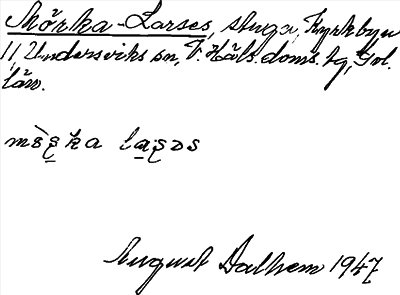 Mörka-Larses, stuga, Kyrkbyn
11, Undersviks sn, V. Häls. doms. tg, Gvl.
län.
August Dalhem 1947